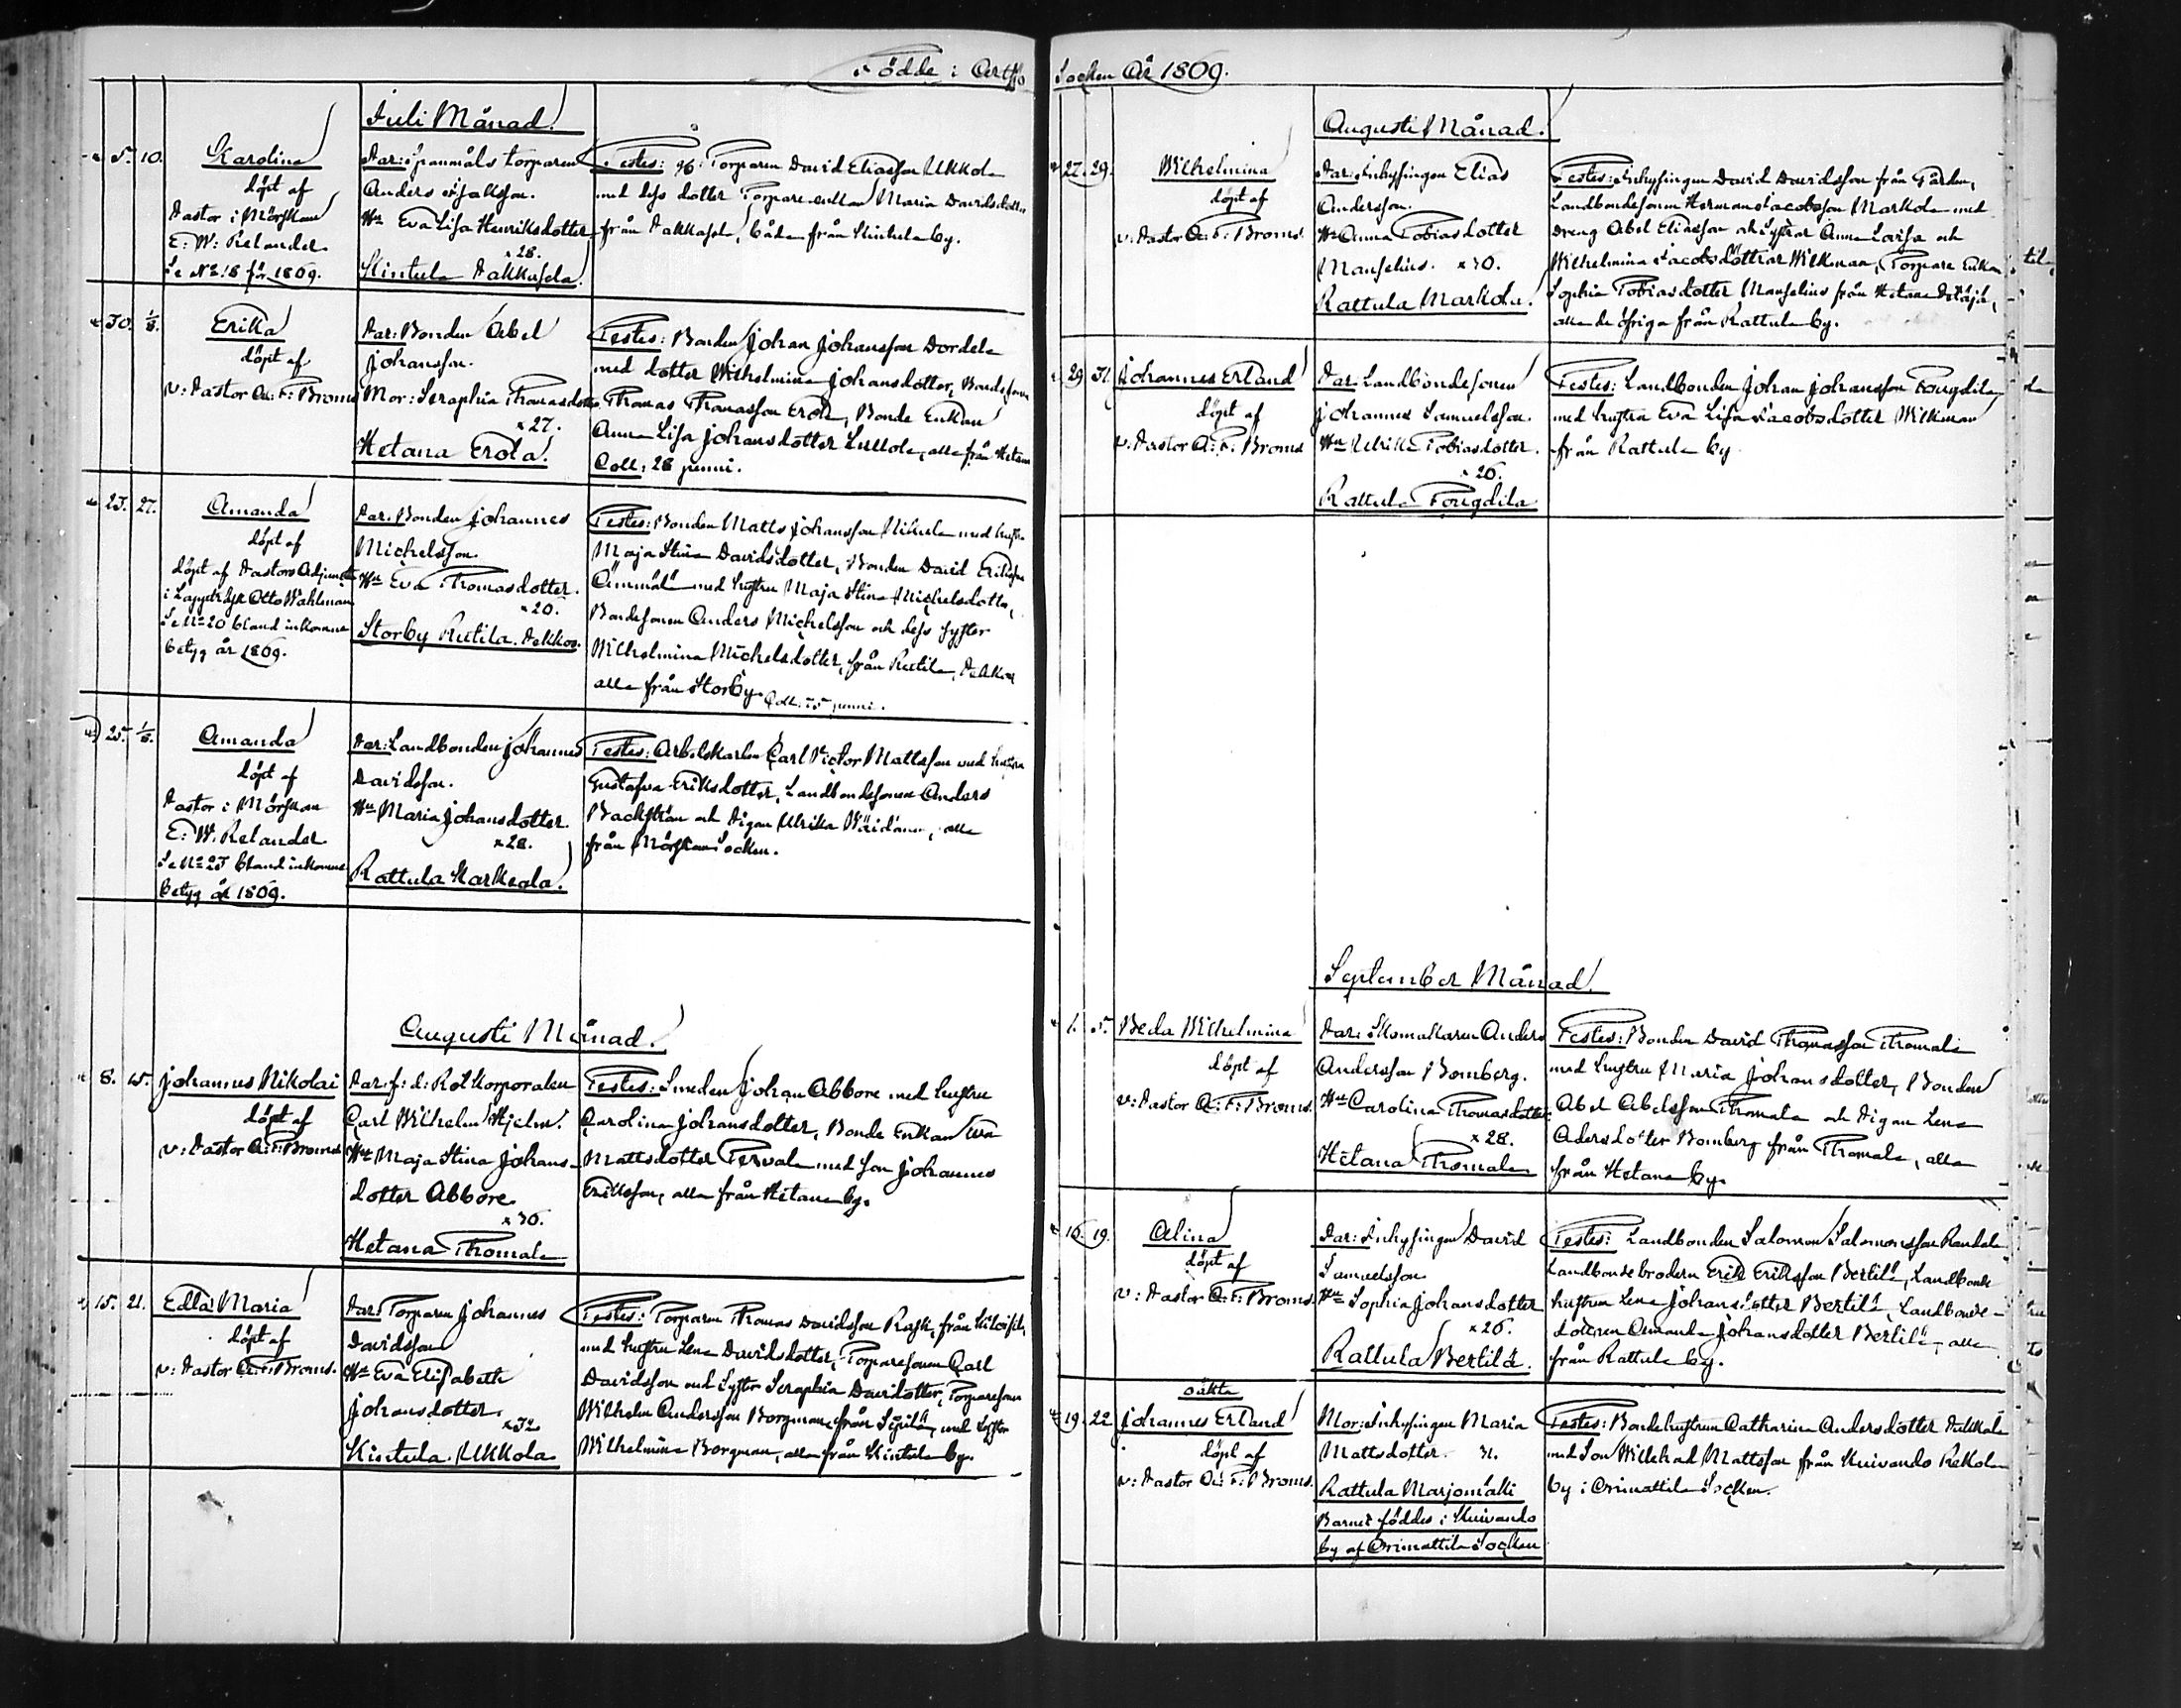 Födde i Arttjo Socken År 1869.
Juli Månad.
5. 10.
Karolina
döpt af
Pastor i Mörskom
E: W: Relander
Se No 18 för 1869.
Par: Spanmåls torparen
Anders Isaksson.
Hu Eva Lisa Henriksdotter
x 28.
Kintula Pakkasela
Testes: Torparen David Eliasson Ukkola
med dess dotter Torpare enkan Maria Davidsdotter
från Pakkasela, båda från Kintula by.
30. 1/8.
Erika
döpt af
v: Pastor A: F: Broms
Par: Bonden Abel
Johansson.
Mor: Seraphia Thomasdotter
x 27.
Hetana Erola.
Testes: Bonden Johan Johansson Dordela
med dotter Wilhelmina Johansdotter, Bondesonen
Thomas Thomasson Erola, Bonde Enkan
Anna Lisa Johansdotter Lullola, alla från Hetana
Coll: 28 penni.
23. 27.
Amanda
döpt af
döpt af Pastors Adjuncten
i Lappträsk Otto Wahlman
Se No 20 bland inkomne
betyg år 1869.
Par: Bonden Johannes
Michelsson.
Hu Eva Thomasdotter.
x 20.
Storby Rutila. Pekkas.
Testes: Bonden Matts Johansson Nikula med hustru
Maja Stina Davidsdotter, Bonden David Eriksson
Ämmälä med hustru Maja Stina Michelsdotter,
Bondesonen Anders Michelsson och dess syster
Wilhelmina Michelsdotter, från Rutila, Pekkas
alla från Storby. Coll: 55 penni.
25. 1/8.
Amanda
döpt af
Pastor i Mörskom
E: W: Relander
Se No 23 bland inkomne
betyg år 1869.
Par: Landbonden Johannes
Davidsson.
Hu Maria Johansdotter.
x 28.
Rattula Karkeala.
Testes: Arbetskarlen Carl Victor Mattsson med hustru
Gustafva Eriksdotter, Landbondesonen Anders
Backström och Pigan Ulrika, alla
från Mörskom Socken.
Augusti Månad.
8. 15.
Johannes Nikolai
döpt af
v: Pastor A: F: Broms
Par: f: d: Rotkorporalen
Carl Wilhelm Hjelm.
Hu Maja Stina Johans-
dotter Abbore.
x 36.
Hetana Thomala
Testes: Smeden Johan Abbore med hustru
Carolina Johansdotter, Bonde Enkan Eva
Mattsdotter Tervala med son Johannes
Eriksson, alla från Hetana by.
15. 21.
Edla Maria
döpt af
v: Pastor A: F: Broms.
Par: Torparen Johannes
Davidsson
Hu Eva Elisabeth
Johansdotter.
x 32
Kintula. Ukkola.
Testes: Torparen Thomas Davidsson Rask, från
med hustru Lena Davidsdotter, Torparesonen Carl
Davidsson med syster Seraphia Davidsdotter, Torparesonen
Wilhelm Andersson Borgman, från Sipilä, med syster
Wilhelmina Borgman, alla från Kintula by.
Augusti Månad.
27. 29.
Wilhelmina
döpt af
v: Pastor A: F: Broms.
Par: Inhysingen Elias
Andersson.
Hu Anna Tobiasdotter
Manselius. x 30.
Rattula Markola.
Testes: Inhysingen David Davidsson från Gården,
Landbondesonen Herman Jacobsson Markola med
Dreng Abel Eliasson och Systrar Anna Lovisa och
Wilhelmina Jacobsdöttrar Wilkman, Torpare Enkan
Sophia Tobiasdotter Manselius från Hetana,
alla de öfriga från Rattula by.
29 31.
Johannes Erland
döpt af
v: Pastor A: F: Broms
Par: Landbondesonen
Johannes Samuelsson.
Hu Ulrika Tobiasdotter.
x 26.
Rattula Fougdila
Testes: Landbonden Johan Johansson Fougdila
med hustru Eva Lisa Jacobsdotter Wilkman
från Rattula by
September Månad.
1. 5.
Beda Wilhelmina
döpt af
v: Pastor A: F: Broms.
Par: Skomakaren Anders
Andersson Bomberg.
Hu Carolina Thomasdotter.
x 28.
Hetana Thomala
Testes: Bonden David Thomasson Thomala
med hustru Maria Johansdotter, Bonden
Abel Abelsson Thomala och Pigan Lena
Adersdotter Bomberg från Thomala, alla
från Hetana by.
16. 19.
Alina
döpt af
v: Pastor A: F: Broms.
Par: Inhysingen David
Samuelsson
Hu Sophia Johansdotter
x 26.
Rattula Bertilä.
Testes: Landbonden Salomon Salomonsson Randala
Landbondebrodern Erik Eriksson Bertilä, Landbonde
hustrun Lena Johansdotter Bertilä, Landbonde-
dottren Amanda Johansdotter Bertilä, alla
från Rattula by.
oäkta
19. 22
Johannes Erland
döpt af
v: Pastor A: F: Broms.
Mor: Inhysingen Maria
Mattsdotter. 31.
Rattula Marjomäki
Barnet föddes i Kuivando
by af Orimattila Socken
Testes: Bondehustrun Catharina Andersdotter
med Son Willehad Mattsson från Kuivando Rekola
by i Orimattila Socken.